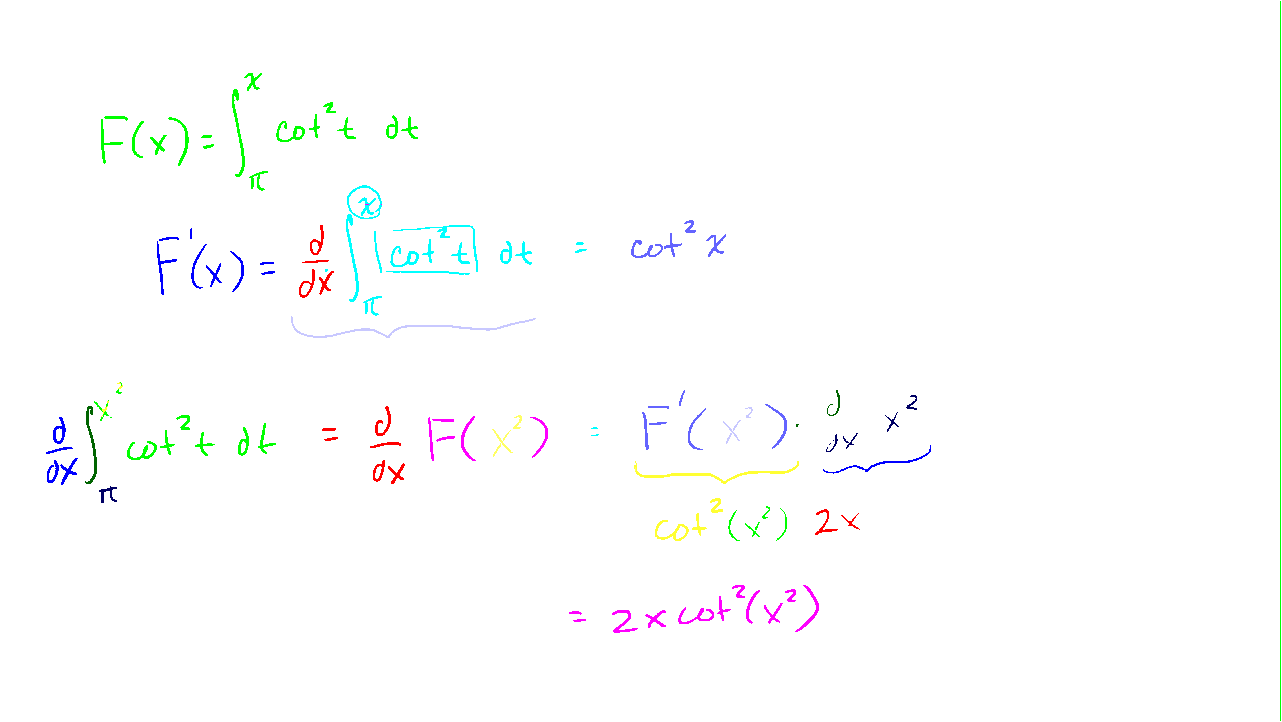 F(x) = ∫_π^x cot² t dt
F'(x) = d/dx ∫_π^x cot² t dt = cot² x
d/dx ∫_π^x² cot² t dt = d/dx F(x²) = F'(x²) · d/dx x²
cot² (x²) 2x
= 2x cot² (x²)